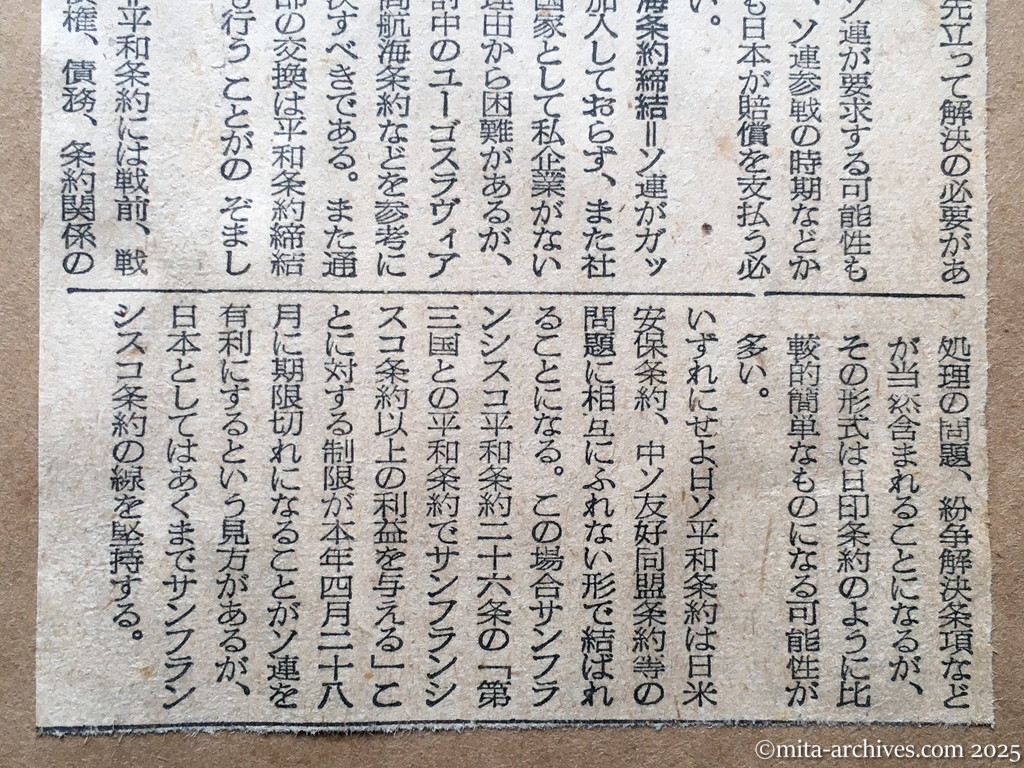 先立って解決の必要があ
ソ連が要求する可能性も
、ソ連参戦の時期などか
も日本が賠償を支払う必
い。
海条約締結＝ソ連がガッ
加入しておらず、また社
国家として私企業がない
理由から困難があるが、
討中のユーゴスラヴィア
商航海条約などを参考に
決すべきである。また通
部の交換は平和条約締結
も行うことがの ぞまし
＝平和条約には戦前、戦
債権、債務、条約関係の
処理の問題、紛争解決条項など
が当然含まれることになるが、
その形式は日印条約のように比
較的簡単なものになる可能性が
多い。
いずれにせよ日ソ平和条約は日米
安保条約、中ソ友好同盟条約等の
問題に相互にふれない形で結ばれ
ることになる。この場合サンフラ
ンシスコ平和条約二十六条の「第
三国との平和条約でサンフランシ
スコ条約以上の利益を与える」こ
とに対する制限が本年四月二十八
月に期限切れになることがソ連を
有利にするという見方があるが、
日本としてはあくまでサンフラン
シスコ条約の線を堅持する。
©mita-archives.com 2025